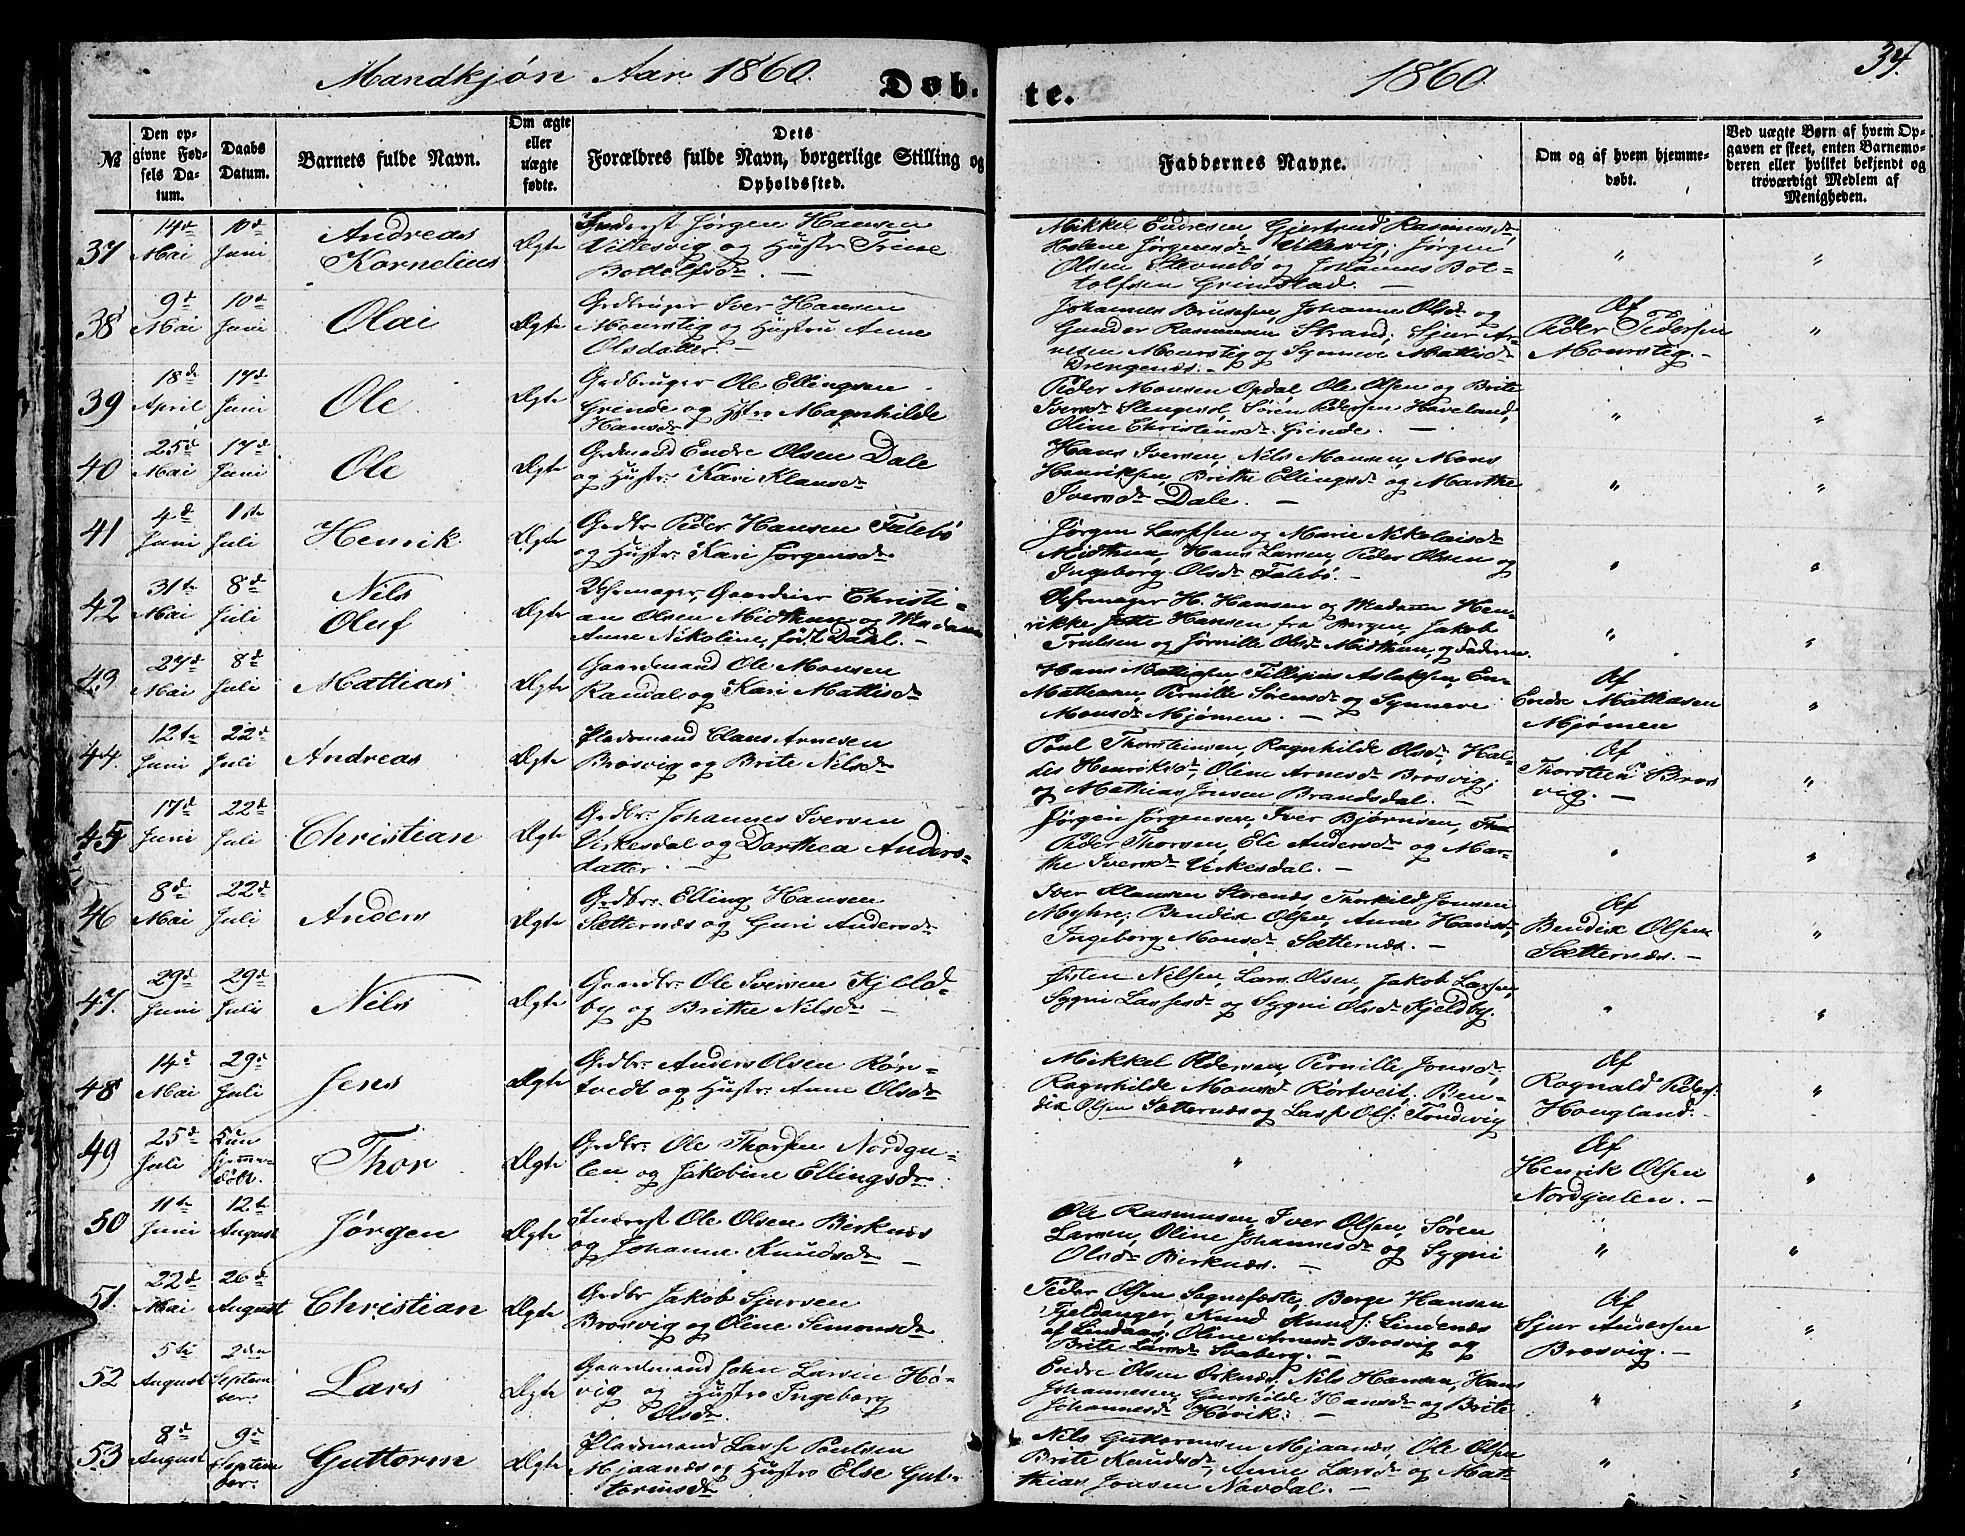 Mandkjøn Aar 1860.
Døb-
te.
1860
34.
№
Den op-
givne Fød-
sels Da-
tum.
Daabs
Datum.
Barnets fulde Navn.
Om ægte
eller
uægte
fødte.
Dets
Forældres fulde Navn, borgerlige Stilling og
Opholdssted.
Faddernes Navne.
Om og af hvem hjemme-
døbt.
Ved uægte Børn af hvem Op-
gaven er skeet, enten Barnemo-
deren eller hvilket bekjendt og
troværdigt Medlem af
Menigheden.
37
14de Mai
10de Juni
Andreas
Kornelius
Ægte
Inderst Jørgen Hansen
Villesvig og Hustr Trine
Bottolfsdr. —
Mikkel Endresen, Gjertrud Rasmusdr
Helene Jørgensdr Villesvig, Jørgen
Olsen Stevnebø og Johannes Bot-
tolfsen Grimstad. —
"
"
38
9de Mai
10de Juni
Olai
Ægte
Grdbruger Iver Hansen
Mourstig og Hustru Anne
Olsdatter. —
Johannes Brusesen, Johanne Olsdr og
Gunder Rasmussen Strand, Sjur Ar-
nesen Mourstig og Synneve Mattisdr
Drengenæs. —
Af
Peder Pedersen
Mourstig. —
"
39
18de April
17de Juni
Ole
Ægte
Grdbruger Ole Ellingsen
Grinde og Hstro Magnhilde
Hansdr
Peder Monsen Opdal, Ole Olsen og Brite
Iversdr Slengesol, Søren Pedersen Haveland,
Oline Christensdr Grinde. —
"
"
40
25de Mai
17de Juni
Ole
Ægte
Grdmand Endre Olsen Dale
og Hustr: Kari Klausdr
Hans Iversen, Nils Monsen, Mons
Henriksen, Brithe Ellingsdr og Marthe
Iversdr Dale. —
"
"
41
4de Juni
1ste Juli
Henrik
Ægte
Grdbr. Peder Hansen Falebø
og Hustr: Kari Jørgensdr
Jørgen Larssen og Marie Nikolaisdr
Midthun, Hans Larsen, Peder Olsen og
Ingeborg Olsdr Falebø. —
"
"
42
31te Mai
8de Juli
Nils
Oluf
Ægte
Uhrmager, Gaardeier Christi-
an Olsen Midthun og Madame
Anne Nikoline, født Dahl. —
Uhrmager H. Hansen og Madame Hen-
rikke Jette Hansen fra Bergen, Jakob
Trulsen og Jørnille Olsdr Midthun, og Faderen
"
"
43
27de Mai
8de Juli
Mathias
Ægte
Gaardmand Ole Monsen
Randal og Kari Mattisdr
Hans Mathiasen, Fillippus Aslaksen, En-
Mathiasen, Pernille Sørensdr og Synneve
Monsdr Mjømen. —
Af
Endre Mathiasen
Mjømen
"
44
12te Juni
22de Juli
Andreas
Ægte
Pladsmand Claus Arnesen
Brosvig og Brite Nilsdr
Poul Thorsteinsen, Ragnhilde Olsdr, Hal-
dis Henriksdr, Oline Arnesdr Brosvig,
og Mathias Jonsen Brandsdal. —
Af
Thorstein P. Bros
vig. —
"
45
17de Juni
22de Juli
Christian
Ægte
Grdbr. Johannes Iversen
Virkesdal og Dorthea Anders-
datter. —
Jørgen Jørgensen, Iver Bjørnsen,
Peder Thorsen, Eli Andersdr og Mar-
the Iversdr Virkesdal. —
"
"
46
8de Mai
22de Juli
Anders
Ægte
Grdbr. Elling Hansen
Sætternæs og Guri Andersdr
Iver Klausen Storenæs, Thorkild Jonsen
Myhre, Bendix Olsen, Anne Hansdr,
Ingeborg Monsdr Sætternæs. —
Af
Bendix Olsen
Sætternæs. —
"
47
29de Juni
29de Juli
Nils
Ægte
Gaardbr. Ole Iversen Kjeld-
by og Brithe Nilsdr —
Østen Nilsen, Lars Olsen, Jakob Larsen,
Sygni Lassesdr og Sygni Olsdr Kjeldby.
"
"
48
14de Mai
29de Juli
Jens
Ægte
Grdbr. Anders Olsen Røn-
tvedt og Hustr: Anne Olsdr
Mikkel Pedersen, Pernille Jonsdr,
Ragnhilde Monsdr Rørtveit, Ben-
dix Olsen Sætternæs og Lasse Ols: Tondevig
Af
Ragnald Peders:
Hougland. —
"
49
25de Juli
Kun
hjemme-
døbt.
Thor
Ægte
Grdbr. Ole Thorsen Nordgu-
len og Jakobine Ellingsdr
"
Af
Henrik Olsen
Nordgulen. —
"
50
11te Juni
12te August
Jørgen
Ægte
Inderst Ole Olsen Birknæs
og Johanne Knudsdr —
Ole Rasmusen, Iver Olsen, Søren
Larsen, Oline Johannesdr og Sygni
Olsdr Birknæs. —
"
"
51.
22de Mai
26de August
Christian
Ægte
Grdbr Jakob Sjursen
Brosvig og Oline Simonsdr
Peder Olsen Sognefæste, Berge Hansen
Fjeldanger, Knud Knuds: Lindenæs
af Lindaas, Oline Arnesdr Brosvig og
Brite Larsdr Svaberg. —
Af
Sjur Andersen
Brosvig. —
"
52
5te August
2den Septem
ber
Lars
Ægte
Gaardmand John Larsen Hø-
vig og Hustro Ingeborg
Olsdr
Endre Olsen Birknæs, Nils Hansen, Hans
Johannesen, Gunhilde Hansdr og Brite
Johannesdr Høvik: —
"
"
53
8de August
9de Septem
ber.
Guttorm
Ægte
Pladsmand Lasse Poulsen
Mjaanæs og Hustro Else Gut-
tormsdr
Nils Guttormsen Mjaanæs, Ole Olsen
Brite Knudsdr, Anne Larsdr og Mat-
thias Jonsen Navdal. —
"
"